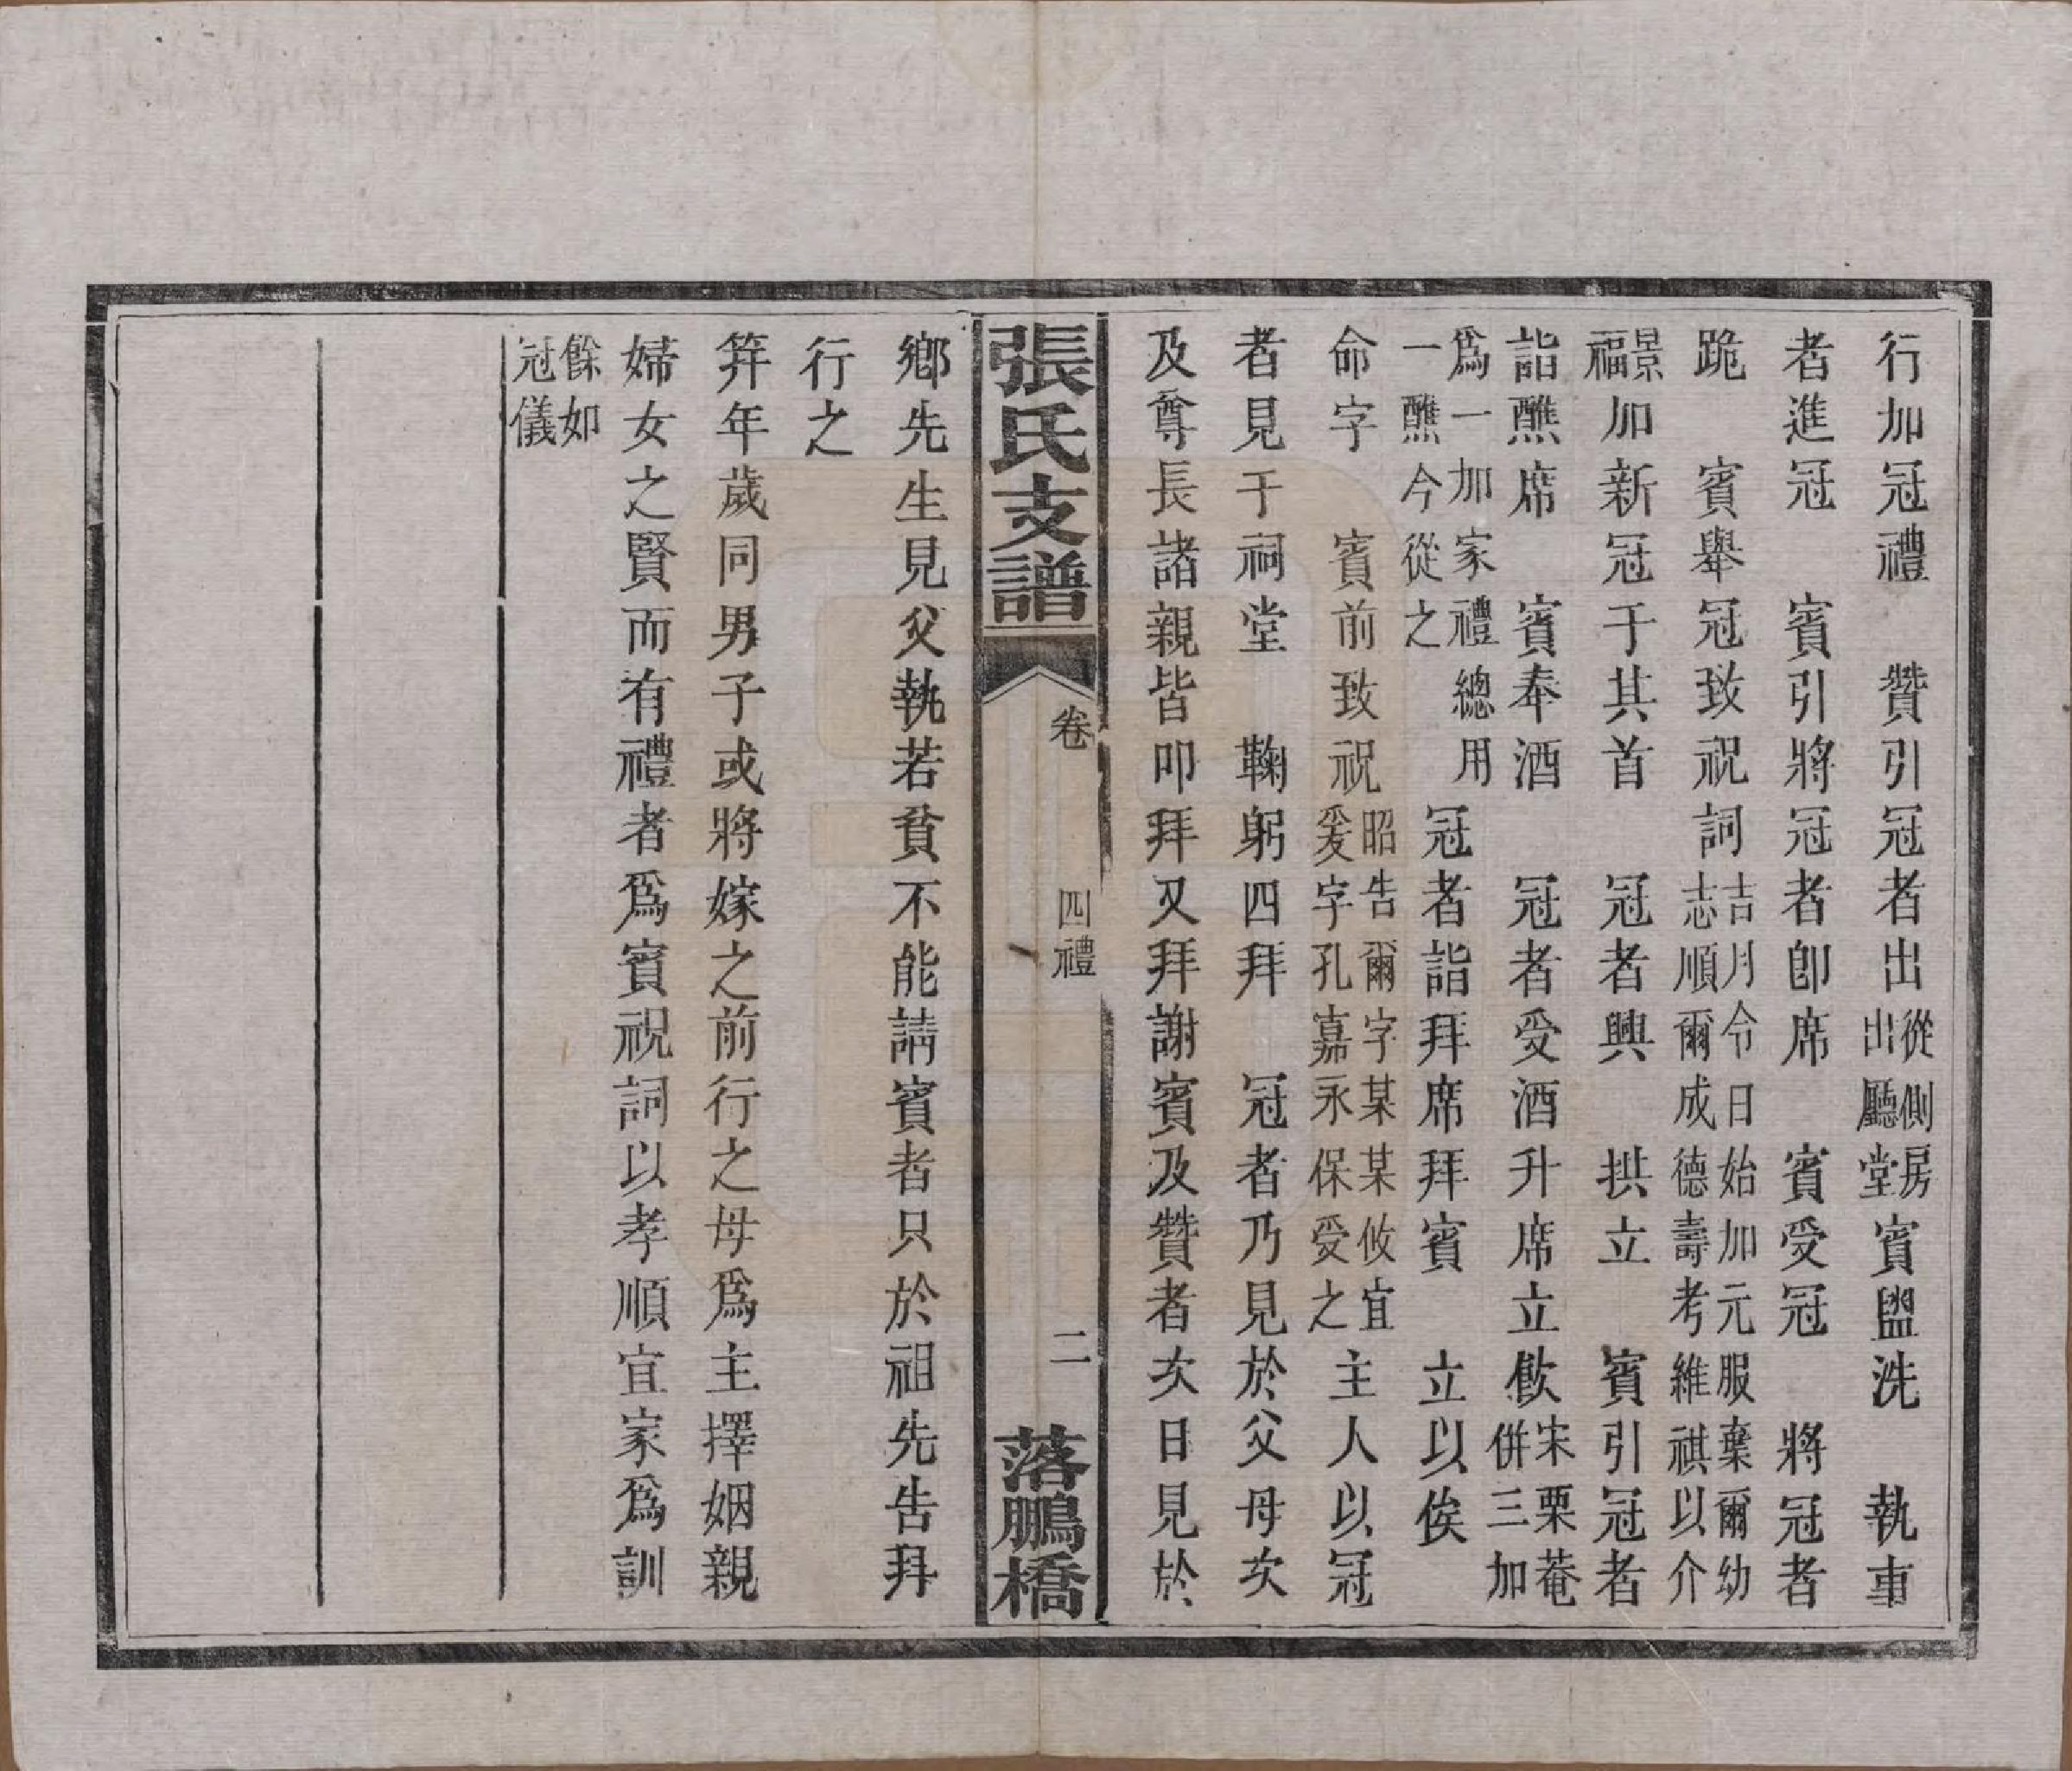 行加冠禮　贊引冠者出從側房出廳堂賓盥洗　執事
者進冠　賓引將冠者卽席　賓受冠　將冠者
跪　賓舉冠致祝詞吉月令日始加元服棄爾幼志順爾成德壽考維祺以介
景福加新冠于其首　冠者興　拱立　賓引冠者
詣醮席　賓奉酒　冠者受酒升席立飮宋栗菴併三加
爲一加家禮總用一醮今從之　冠者詣拜席拜賓　立以俟
命字　賓前致祝昭告爾字某某攸宜爰字孔嘉永保受之主人以冠
者見于祠堂　鞠躬四拜　冠者乃見於父母次
及尊長諸親皆叩拜又拜謝賓及贊者次日見於
張氏支譜　卷　四禮　二　落鵬橋
鄉先生見父執若貧不能請賓者只於祖先告拜
行之
笄年歲同男子或將嫁之前行之母爲主擇姻親
婦女之賢而有禮者爲賓祝詞以孝順宜家爲訓
餘如冠儀